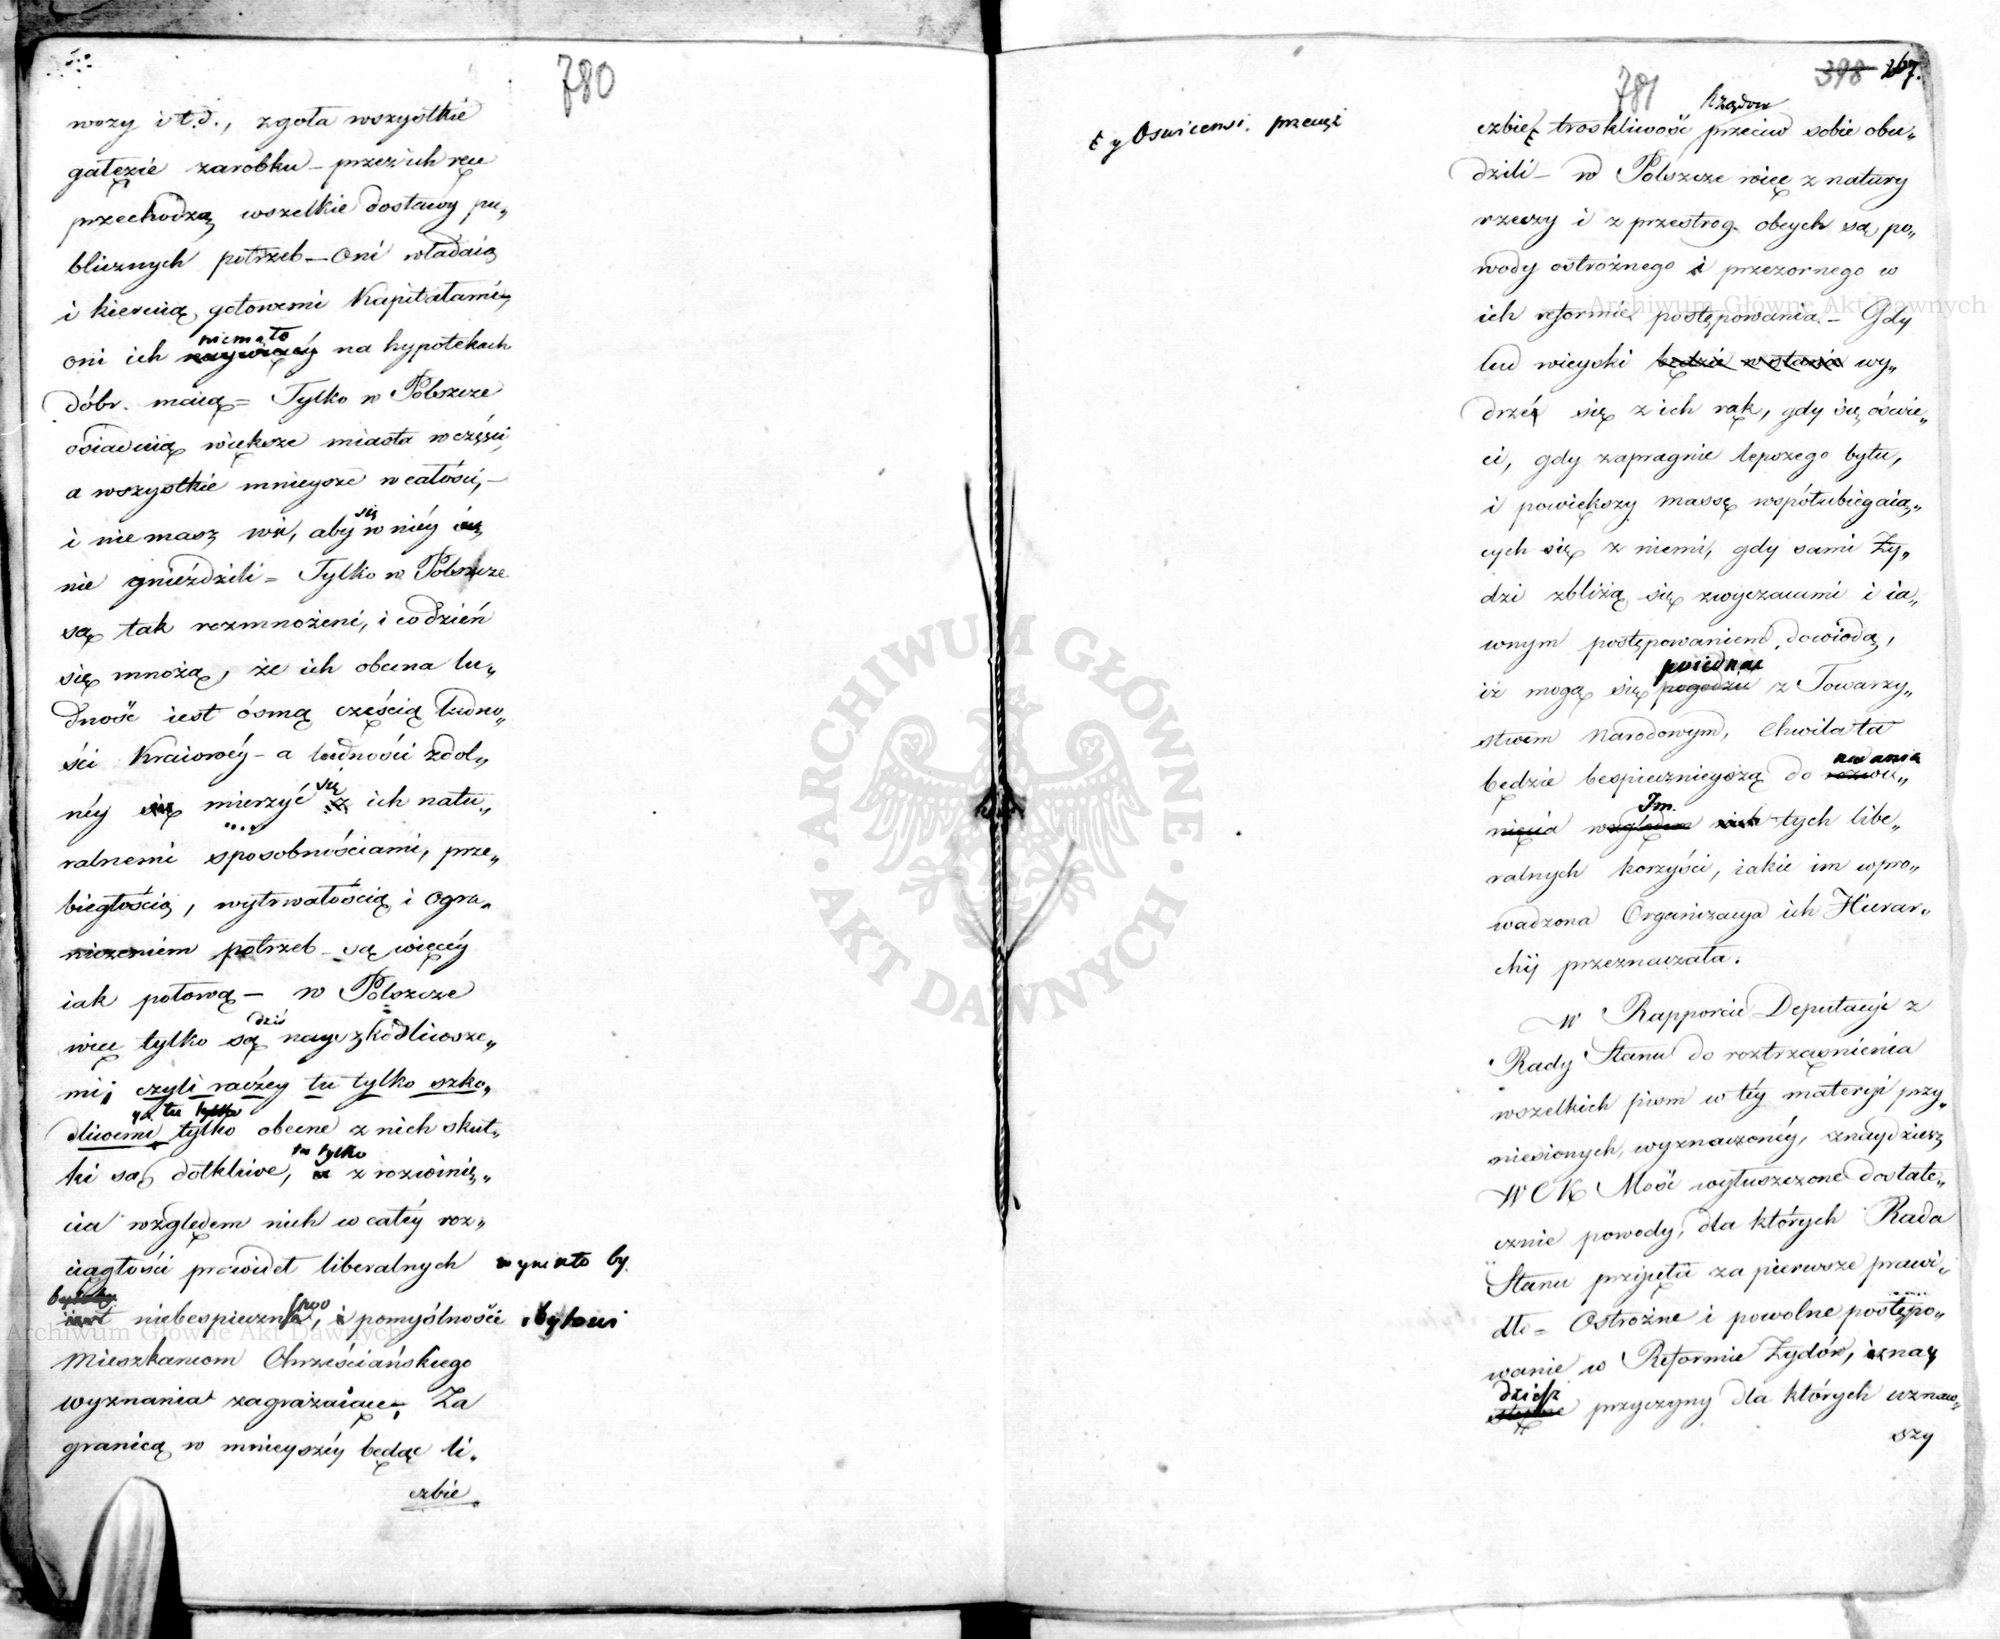 780
wozy i t.d., zgoła wszystkie
gałęzie zarobku – przez ich ręce
przechodzą wszelkie dostawy pu„
blicznych potrzeb – oni władaią
i kieruią gotowemi Kapitałami,
niemało
oni ich naywięcéy na hypotekach
dóbr maią = Tylko w Polszcze
osiadaią większe miasta w części,
a wszystkie mnieysze w całości, –
i nie masz wsi, aby się w niéy się
nie gnieździli = Tylko w Polszcze
są tak rozmnożeni, i co dzień
się mnożą, że ich obecna lu„
dność iest ósmą częścią ludno„
ści Kraiowéy – a ludności zdol„
néy się mierzyć się z ich natu„
ralnemi sposobnościami, prze„
biegłością, wytrwałością i ogra„
niczeniem potrzeb – są więcéy
iak połową – w Polszcze
dziś
więc tylko są nayszkodliwsze„
mi; czyli raczéy tu tylko szko„
tu tylko
dliwemi tylko obecne z nich skut„
tu tylko
ki są dotkliwe, a z rozwinię„
cia względem nich w całéy roz„
ciągłości prawideł liberalnych wynikło by
iest niebespieczne, i pomyślności bytowi
Mieszkańcom Chrześciańskiego
wyznania zagrażaiące; Za
granicą w mnieyszéy będąc li„
czbie
781
398 267.
Rządów
czbie troskliwość przeciw sobie obu„
dzili – w Polszcze więc z natury
rzeczy i z przestrog obcych są po„
wody ostrożnego i przezornego w
ich reformie postępowania – Gdy
lud wieyski będzie w stanie wy„
drzéć się z ich rąk, gdy się oświe„
ci, gdy zapragnie lepszego bytu,
i powiększy massę wspótubiegaią„
cych się z niemi, gdy sami Ży„
dzi zbliżą się zwyczaiami i ia„
wnym postępowaniem dowiodą,
poiednać
iż mogą się pogodzić z Towarzy„
stwem Narodowym, Chwila ta
nadania
będzie bespiecznieyszą do rozwi„
Im
nięcia względem ich tych libe„
ralnych korzyści, iakie im wpro„
wadzona Organizacya ich Hierar„
chij przeznaczała.
W Rapporcie Deputacyi z
Rady Stanu do roztrząśnienia
wszelkich pism w téy materyi przy„
niesionych, wyznaczonéy, znaydziesz
WCK Mość wyłuszczone dostate„
cznie powody, dla których Rada
Stanu przyjęła za pierwsze prawi„
dło = Ostrożne i powolne postępo„
wanie w Reformie Żydów, i znay
dziesz
przyczyny dla których uznaw„
szy
Archiwum Główne Akt Dawnych
Archiwum Główne Akt Dawnych
ARCHIWUM GŁÓWNE · AKT DAWNYCH ·